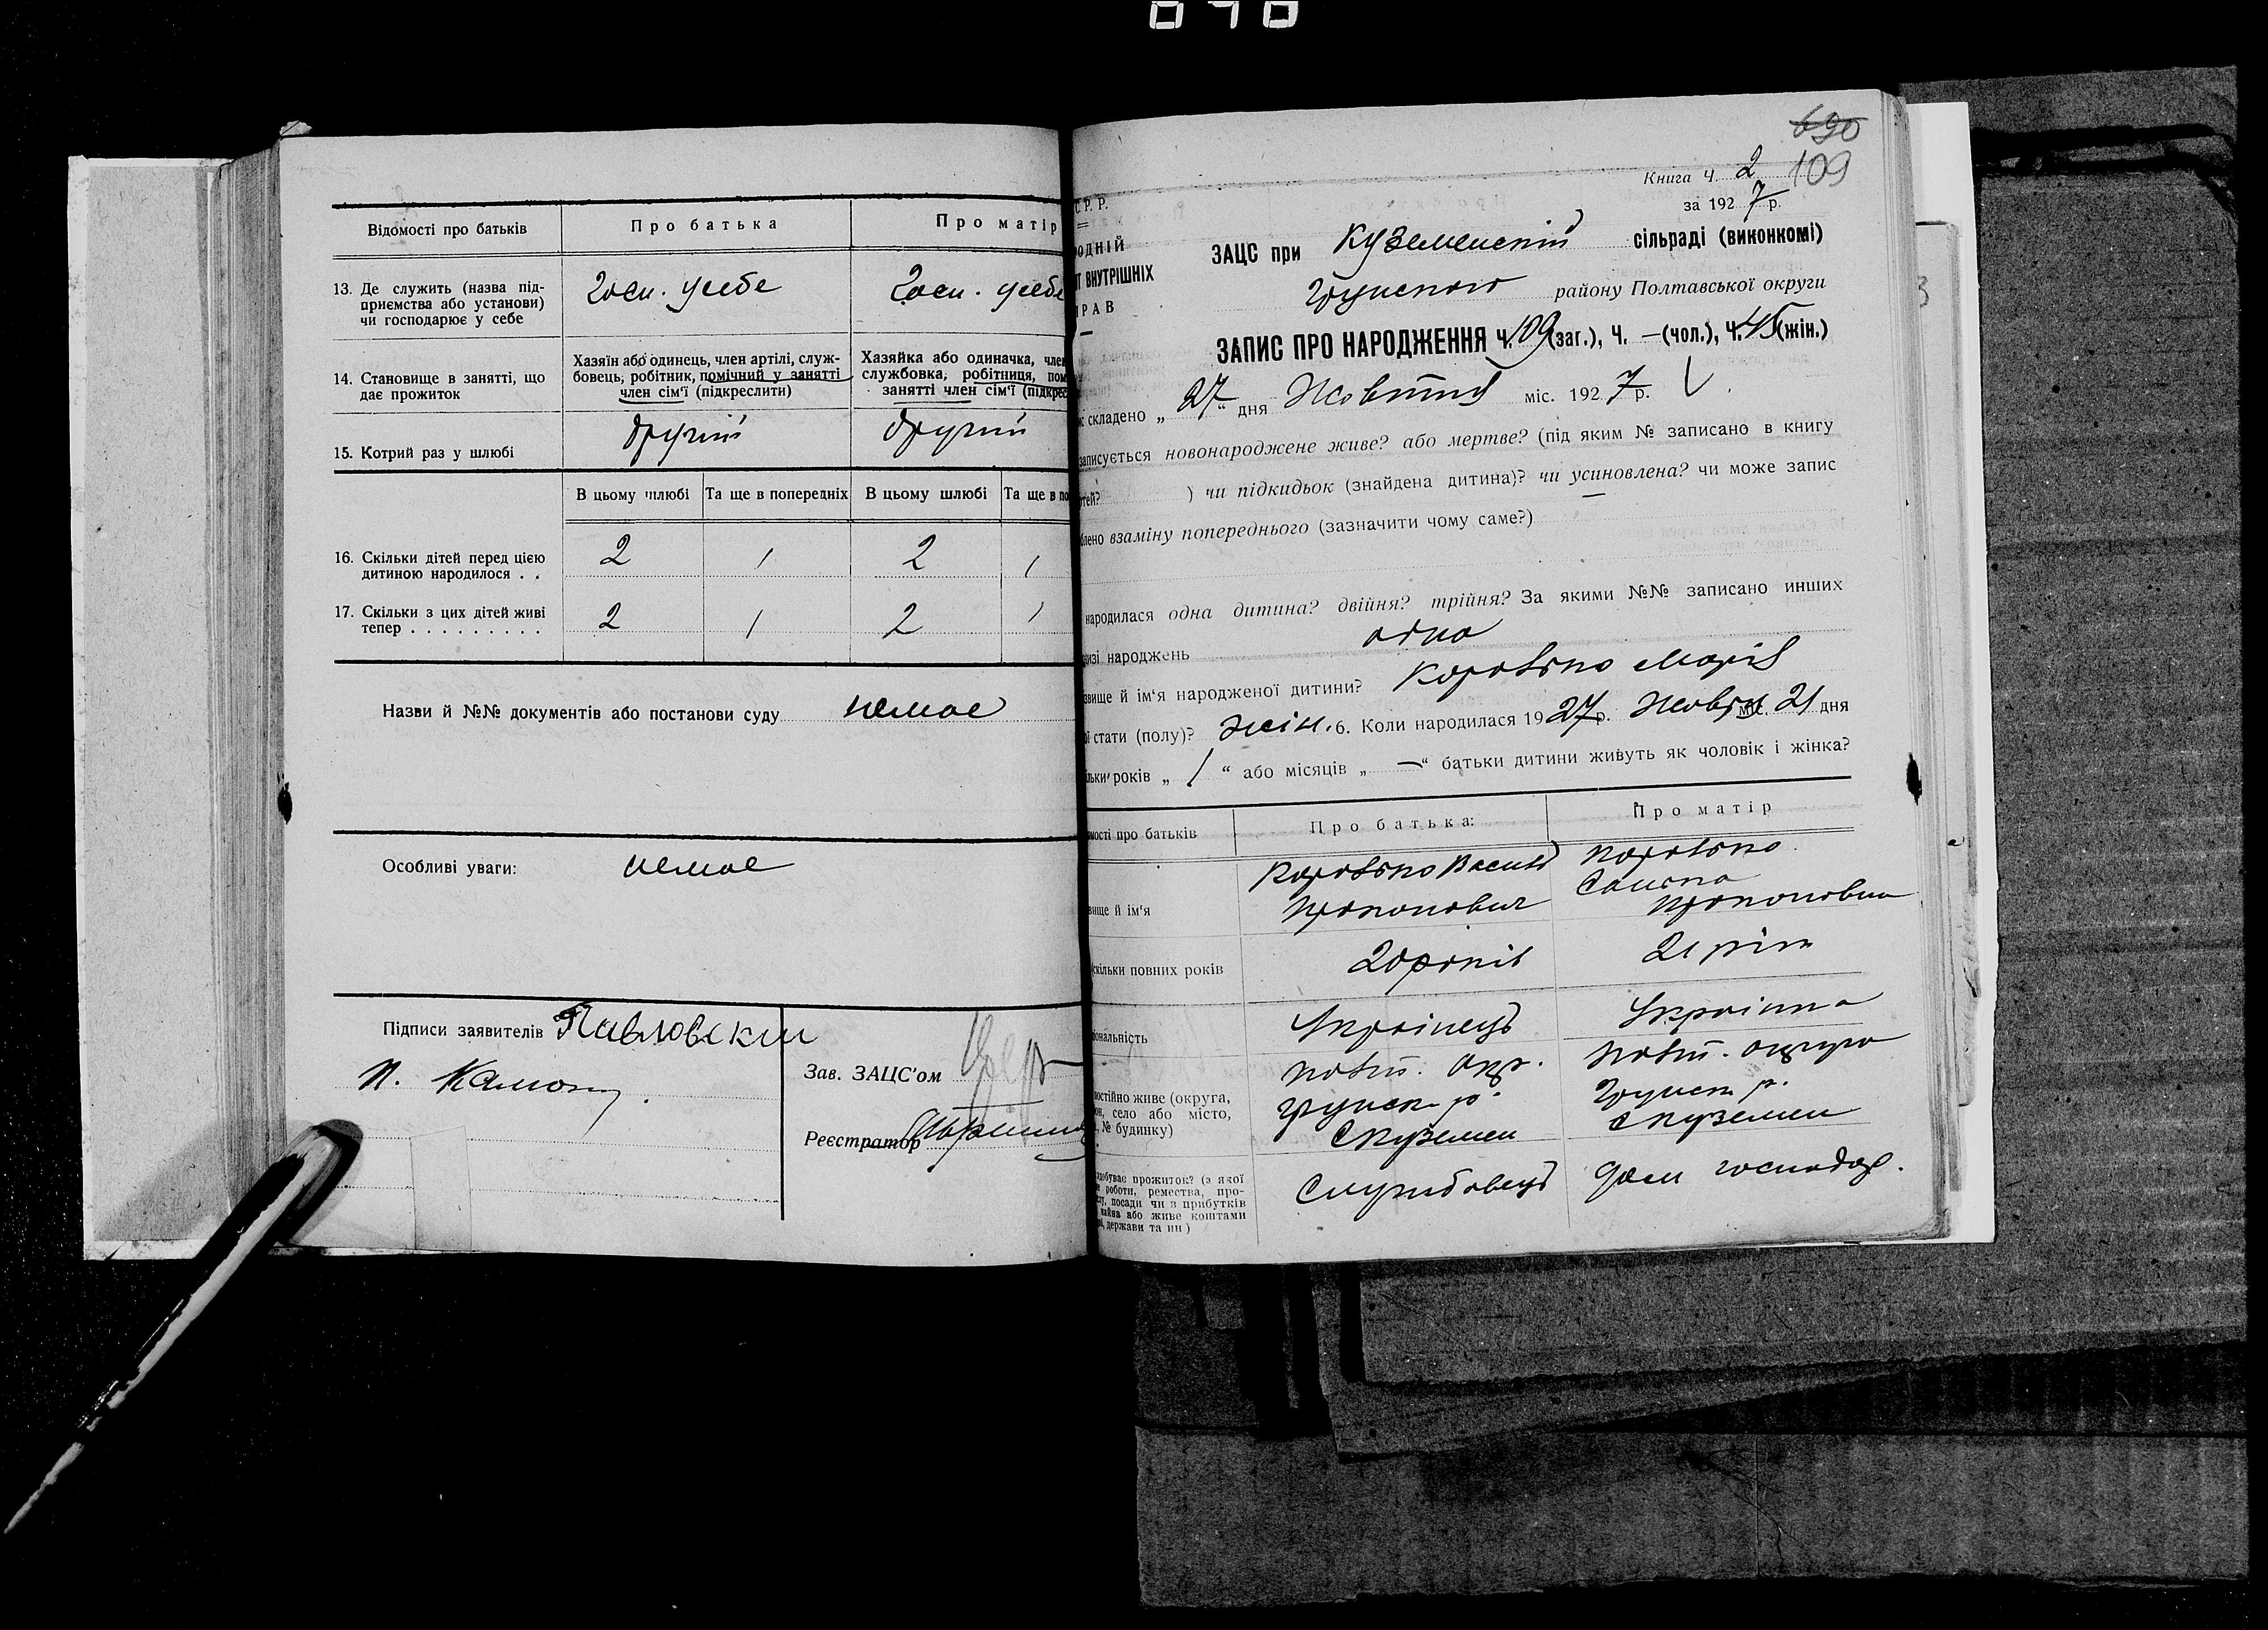 Відомості про батьків
Про батька
Про матір
13. Де служить (назва під-
приємства або установи)
чи господарює у себе
Госп. у себе
Госп. у себе
14. Становище в занятті, що
дає прожиток
Хазяїн або одинець, член артілі, служ-
бовець, робітник, помічний у занятті
член сім'ї (підкреслити)
Хазяйка або одиначка, член
службовка, робітниця, пом
занятті член сім'ї (підкрес
15. Котрий раз у шлюбі
другий
другий
В цьому шлюбі
Та ще в попередніх
В цьому шлюбі
Та ще в по
16. Скільки дітей перед цією
дитиною народилося . .
2
1
2
1
17. Скільки з цих дітей живі
тепер . . . . . . . . .
2
1
2
1
Назви й №№ документів або постанови суду немає
Особливі уваги: немає
Підписи заявителів Павловскии
Зав. ЗАЦС'ом
Реєстратор
690
Книга Ч. 2 109
за 1927 р.
С. Р. Р.
ОДНІЙ
Т ВНУТРІШНІХ
РАВ
ЗАЦС при Куземенскій сільраді (виконкомі)
Грунського району Полтавської округи
ЗАПИС ПРО НАРОДЖЕННЯ Ч. 109 (заг.), Ч. — (чол.), Ч. 45 (жін.)
складено „27“ дня Жовтня міс. 1927 р.
записується новонароджене живе? або мертве? (під яким № записано в книгу
ртей? ) чи підкидьок (знайдена дитина)? чи усиновлена? чи може запис
блено взаміну попереднього (зазначити чому саме?)
народилася одна дитина? двійня? трійня? За якими №№ записано инших
низі народжень одна
звище й ім'я народженої дитини? Коровяко Марія
ої стати (полу)? жін. 6. Коли народилася 1927 р. Жовтн міс. 21 дня
ільки років „1“ або місяців „—“ батьки дитини живуть як чоловік і жінка?
мості про батьків
Про батька:
Про матір
вище й ім'я
Коровяко Василь
Прокопович
Коровяко
Прокоповна
скільки повних років
20 років
21 рік
іональність
Українець
Українка
постійно живе (округа,
он, село або місто,
, № будинку)
Полт. окр.
Грунськ р.
С Куземен
Полт. округа
Грунськ р.
С Куземен
здобуває прожиток? (з якої
роботи, ремества, про-
у, посади чи з прибутків
майна або живе коштами
і, держави та ин)
Службовець
Дом господар.